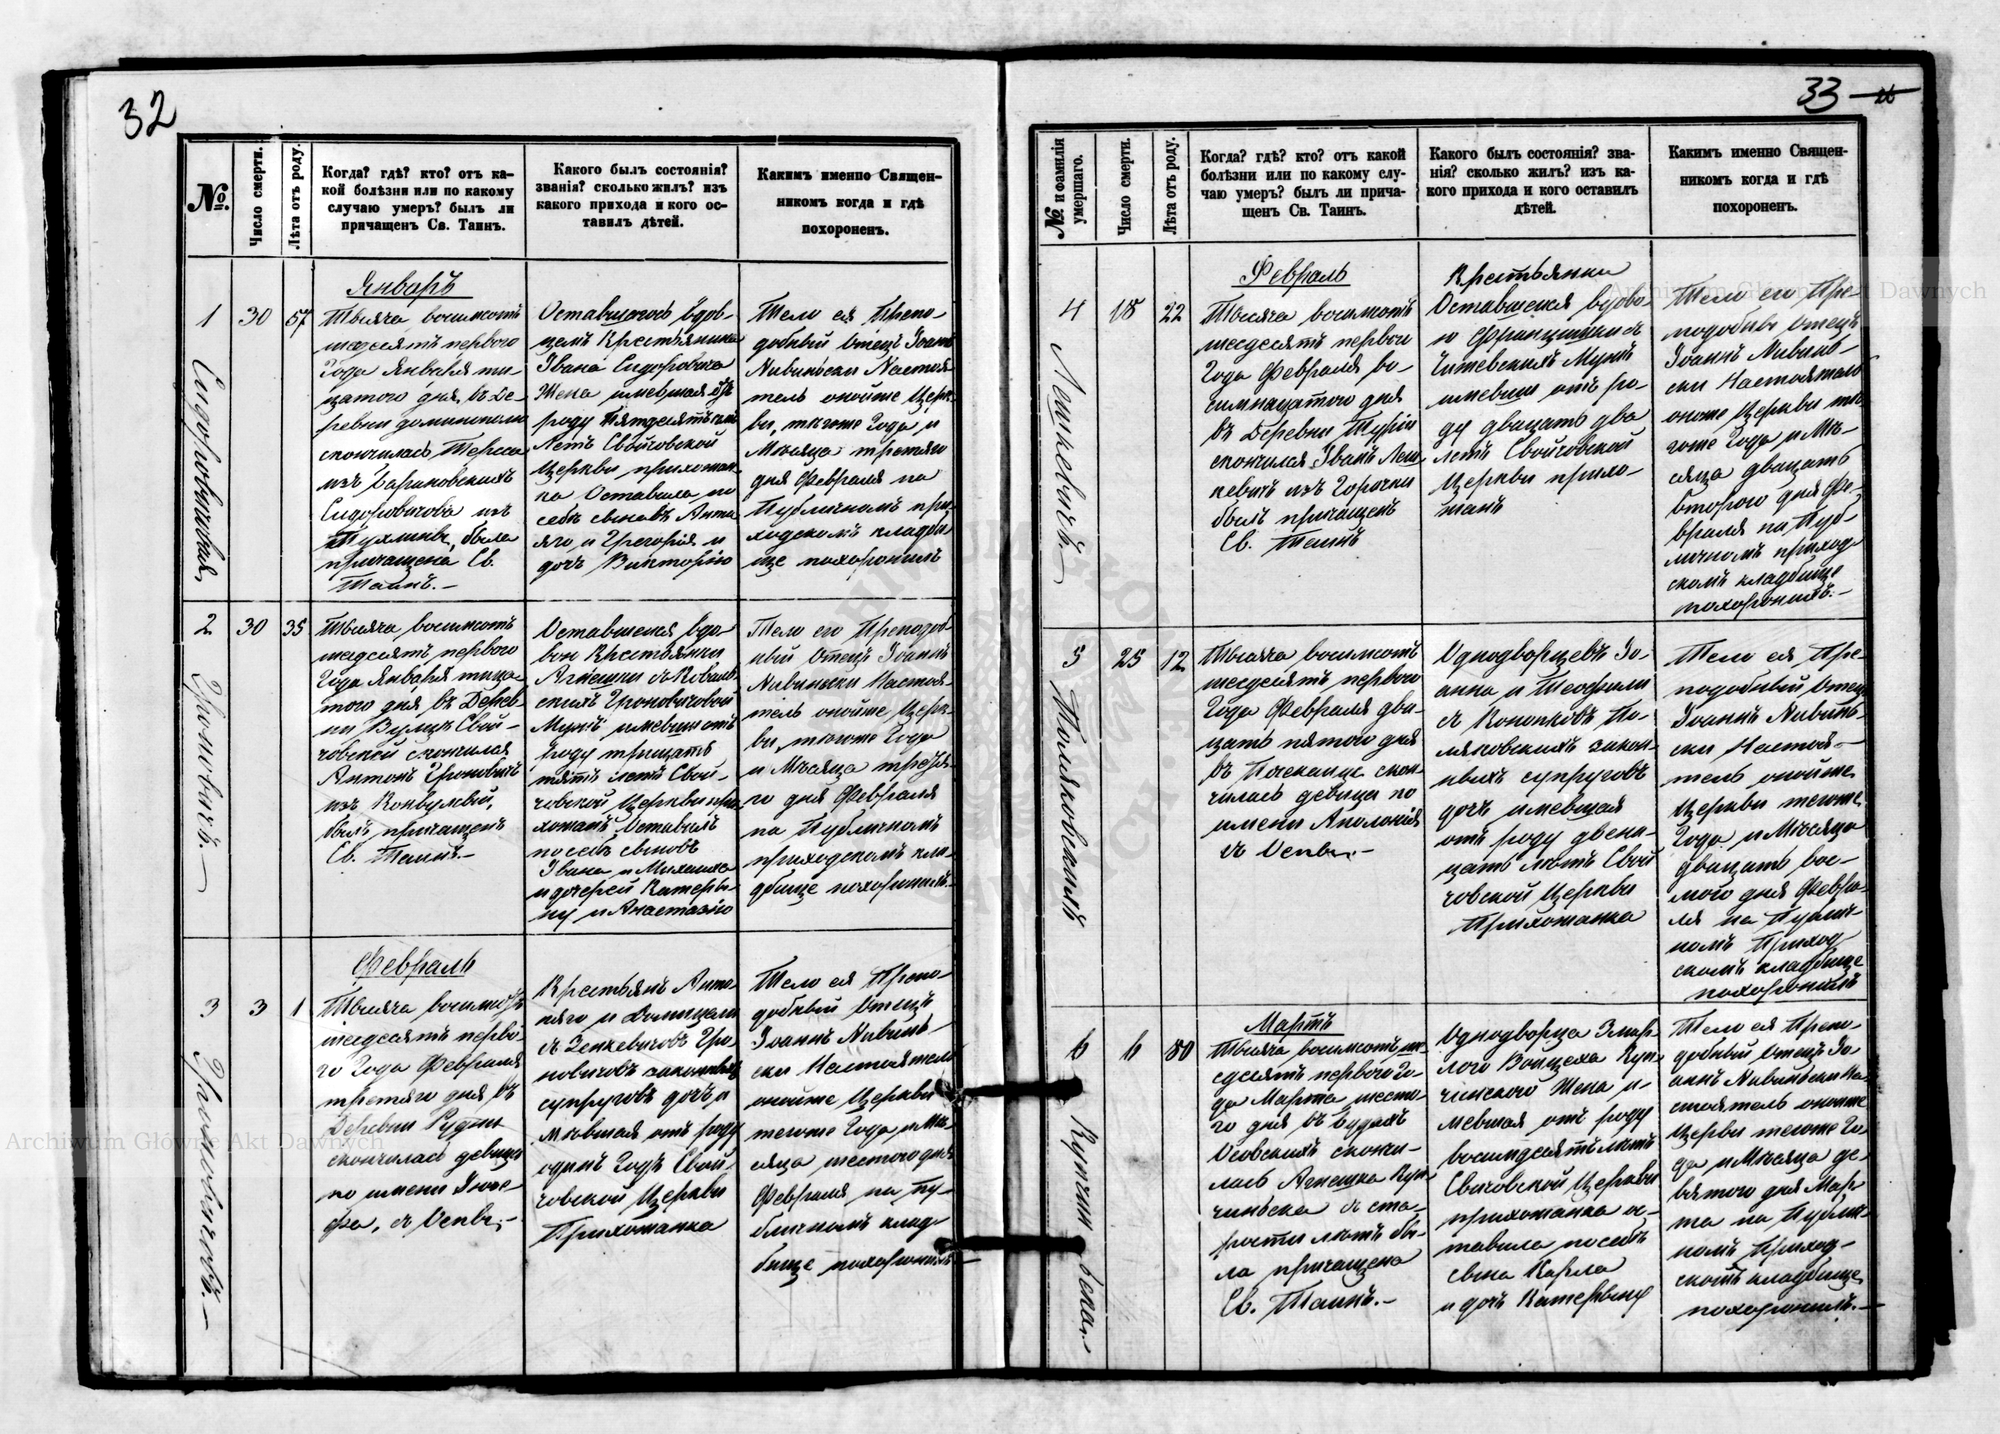 32
№.
Число смерти.
Лѣта отъ роду.
Когда? гдѣ? кто? отъ ка-
кой болѣзни или по какому
случаю умеръ? былъ ли
причащенъ Св. Таинъ.
Какого былъ состоянія?
званія? сколько жилъ? изъ
какого прихода и кого ос-
тавилъ дѣтей.
Какимъ именно Священ-
никомъ когда и гдѣ
похороненъ.
1
30
57
Январъ
Тысяча восимсотъ
шесдесятъ первого
Года Января
цатого дня, въ де-
ревни
скончилась Тереса
изъ Барановскихъ
Сидоровичова изъ
была
причащена Св.
Таинъ.—
Оставшогось вдов-
цемъ Крестьянина
Ивана Сидоровича
Жена имевшая отъ
роду Пятдесятъ семъ
Летъ Свойчовской
Церкви прихожан-
ка Оставила по
себѣ сыновъ Анто-
яго, и Грегорія и
дочъ Викторію
Тело ея Препо-
добный Отецъ Іоанъ
Настоя-
тель онойже Церк-
ви, тыгоже Года и
Мѣсяца третяго
дня Февраля на
Публичномъ при-
ходскомъ кладби-
ще похоронилъ
2
30
35
Тысяча восимсотъ
шесдесятъ первого
Года Января трица-
того дня въ Дерев-
ни Вулцѣ Свой-
човской скончился
Антонъ Гроновичъ
изъ Конвулзій,
былъ причащенъ
Св. Таинъ.—
Гроновичъ.—
Оставшеися вдо-
вои Крестьянки
Агнешки съ Коваль-
скихъ Гроновичовой
Мужъ имевши отъ
роду трицать
пять летъ Свой-
човской Церкви при-
хожанъ, Оставилъ
по себѣ сыновъ
Ивана и Михаила
и дочерей Катеры-
ну и Анастазію
Тело его Преподоб-
ный Отецъ Іоанъ
Настоя-
тель онойже Церк-
ви, тыгоже Года
и Мѣсяца третя-
го дня Февраля
на Публичномъ
приходскомъ кла-
дбище похоронилъ.
3
3
1
Февраль
Тысяча восимсотъ
шесдесятъ перво-
го Года Февраля
третяго дня въ
Деревни Рудни
скончилась девица
по имени Юзе-
фа, съ Оспы.—
Гроновичовъ.—
Крестьянъ Анто-
няго и Домицели
съ Зенкевичовъ Гро-
новичовъ законныхъ
супруговъ дочъ и
мѣвшая отъ роду
одинъ Годъ Свой-
човской Церкви
Прихожанка
Тело ея Препо-
добный Отецъ
Іоанъ
Настоятель
онойже Церкви
тегоже Года и Мѣ-
сяца шестого дня
Февраля на Пу-
бличномъ клад-
бище похоронилъ—
33
26
№ и фамилія
умершаго.
Число смерти.
Лѣта отъ роду.
Когда? гдѣ? кто? отъ какой
болѣзни или по какому слу-
чаю умеръ? былъ ли прича-
щенъ Св. Таинъ.
Какого былъ состоянія? зва-
нія? сколько жилъ? изъ ка-
кого прихода и кого оставилъ
дѣтей.
Какимъ именно Священ-
никомъ когда и гдѣ
похороненъ.
4
18
22
Лешкевичъ.—
Февраль
Тысяча восимсотъ
шесдесятъ первого
Года Февраля во-
симнацатого дня
въ Деревни Туріи
скончился Иванъ Леш-
кевичъ изъ Горачки
былъ причащенъ
Св. Таинъ
Крестьянки
Оставшеися вдово-
ю Францишки съ
Мужъ
имевши отъ ро-
ду двацать два
летъ Свойчовской
Церкви прихо-
жанъ
Тело его Пре-
подобны Отецъ
Іоанъ
Настоятель
оноже Церкви ты-
гоже Года и Мѣ-
сяца двацать
второго дня Фе-
враля на Пуб-
личномъ приход-
скомъ кладбище
похоронилъ.—
5
25
12
Поляковскихъ
Тысяча восимсотъ
шесдесятъ первого
Года Февраля два-
цать пятого дня
въ скон-
чилась девица по
имени Аполонія
съ Оспы.—
Однодворцевъ Іо-
анна и Теофили
съ Конопковъ По-
ляковскихъ закон-
ныхъ супруговъ
дочъ имевшая
отъ роду двена-
цать летъ Свой
човской Церкви
Прихожанка
Тело ея Пре-
подобный Отецъ
Іоанъ
Настоя-
тель онойже
Церкви тегоже
Года и Мѣсяца
двацать вос-
мого дня Февра-
ля на Публич-
номъ Приход
скомъ кладбище
похоронилъ
6
6
80
Мартъ
Тысяча восимсотъ ше-
сдесятъ первого Го-
да Марта шесто-
го дня въ Будахъ
Осовскихъ скончи-
лась Агнешка Куп-
чиньска съ ста-
рости летъ бы-
ла причащена
Св. Таинъ.—
Однодворца Змар-
лого Войцеха Куп-
чинского Жена и-
мевшая отъ роду
восимдесятъ летъ
Свичовской Церкви
прихожанка о-
тавила по себѣ
сына Карла
и дочъ Катерыну
Тело ея Препо-
добный Отецъ Іо-
анъ На-
стоятель онойже
Церви тегоже Го-
да и Мѣсяца де-
вятого дня Мар
та на Публич-
номъ Приход-
скомъ кладбище
похоронилъ.—
Archiwum Główne Akt Dawnych
Archiwum Główne Akt Dawnych